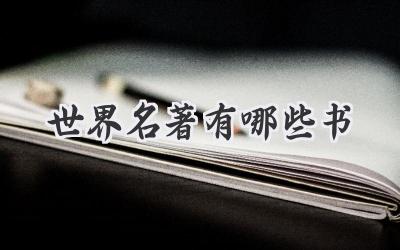 世界名著有哪些书